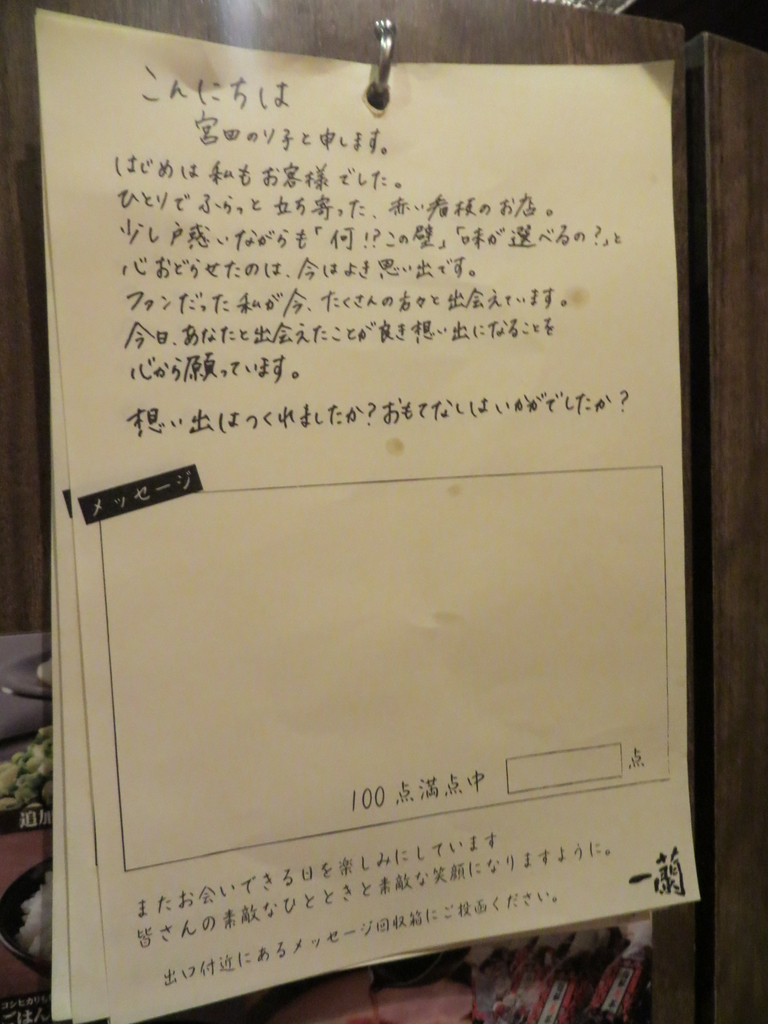 こんにちは
宮田のり子と申します。
はじめは私もお客様でした。
ひとりでふらっと立ち寄った、赤い看板のお店。
少し戸惑いながらも「何!?この壁」「味が選べるの?」と
心おどらせたのは、今はよき思い出です。
ファンだった私が今、たくさんの方々と出会えています。
今日、あなたと出会えたことが良き想い出になることを
心から願っています。
想い出はつくれましたか?おもてなしはいかがでしたか?
メッセージ
100点満点中 点
またお会いできる日を楽しみにしています
皆さんの素敵なひとときと素敵な笑顔になりますように。
出口付近にあるメッセージ回収箱にご投函ください。
一蘭
追加
コシヒカリ
ごはん